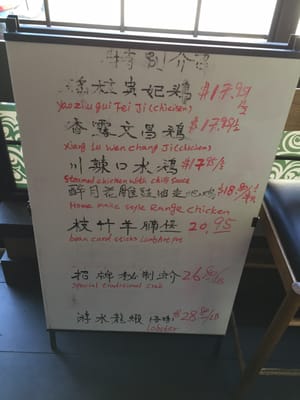 特別介紹
瑤柱貴妃鷄 $17.99/½
yaozhu gui Fei Ji (chicken)
香露文昌鷄 $17.99/½
Xiang Lu wen chang Ji (chicken)
川辣口水鷄 $17.95/½
Steamed chicken with chilli sauce
醉月花雕豉油走地鷄 $18.80/½
Home make style Range chicken
枝竹羊腩煲 20.95
bean curd sticks Lamb Hot Pot
招牌秘制 26.80/LB
Special traditional crab
游水龍蝦 $28.80/LB
Lobster